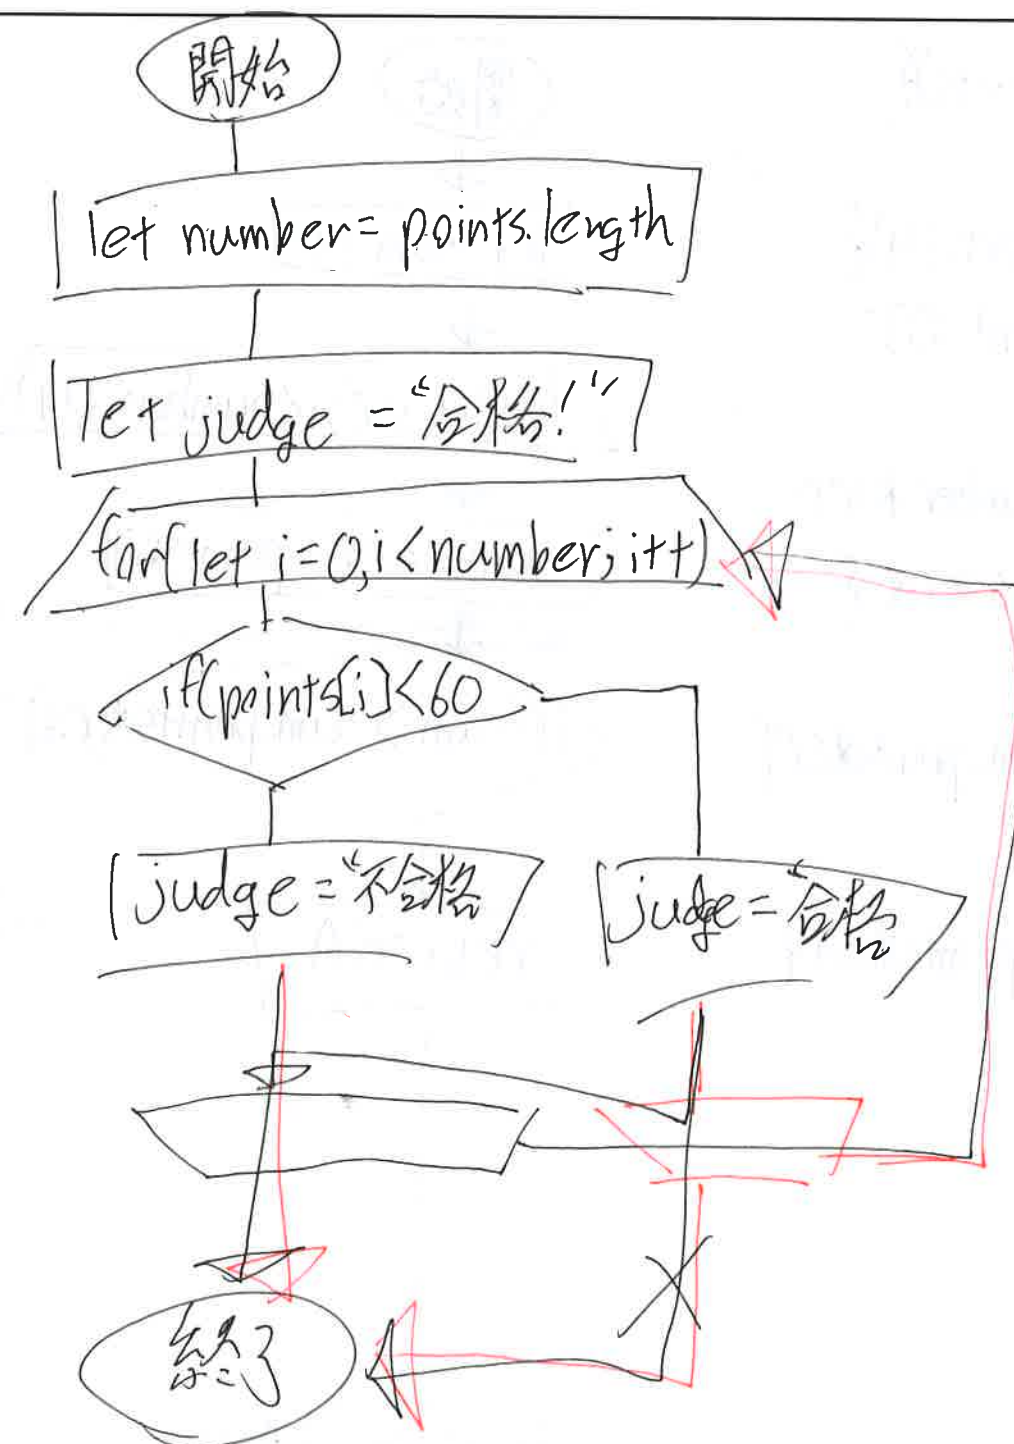 開始
let number = points.length
let judge = "合格!"
for(let i=0,i<number; i++)
if(points[i]<60
judge = "不合格
judge = "合格
終了